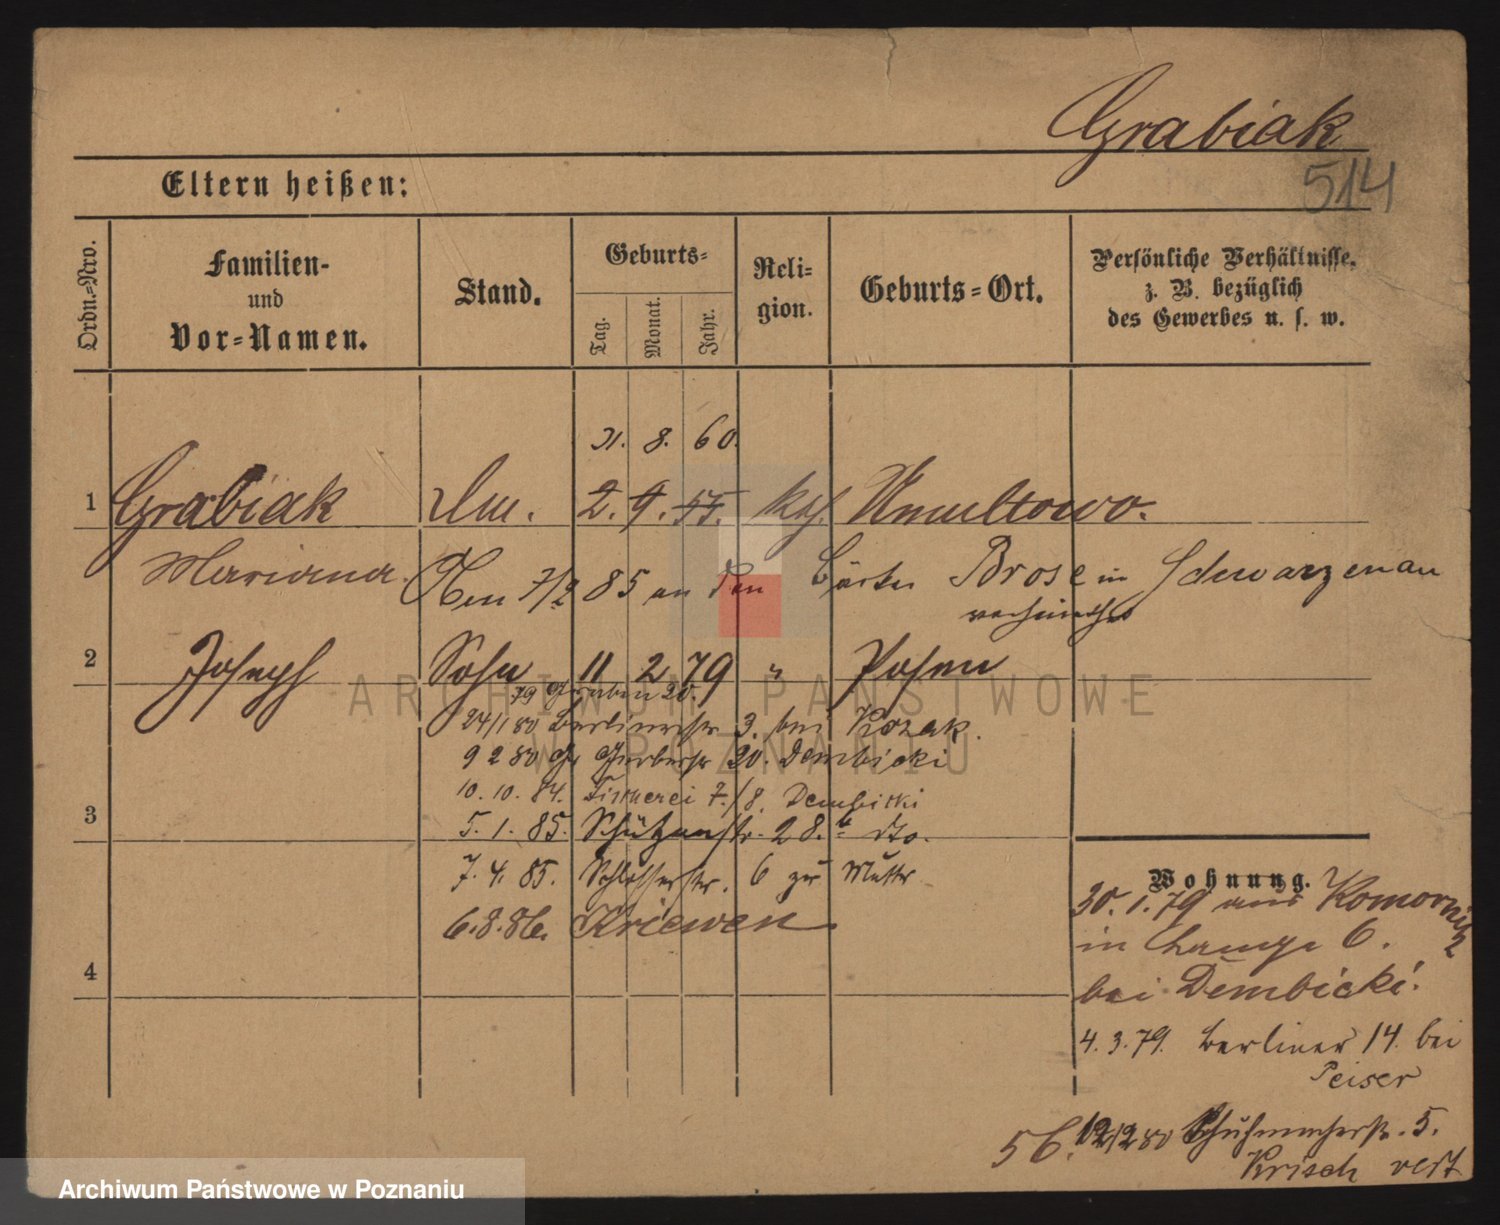 Grabiak
514
Eltern heißen:
Ordn.=Nro.
Familien-
und
Vor=Namen.
Stand.
Geburts=
Tag.
Monat.
Jahr.
Reli=
gion.
Geburts=Ort.
Persönliche Verhältnisse,
z. B. bezüglich
des Gewerbes u. s. w.
21. 8. 60.
1 Grabiak 2. 9. 55. kth. Umultowo.
Mariana. 7/2 85 an den Brose in Schwarzenau
verheirathet
2 Joseph Sohn 11 2 79 " Posen
79 Graben 20.
24/1 80 Berlinerstr 3. bei Kozak.
9 2 80 Gr Gerberstr 20. Dembicki
10. 10. 84. Fischerei 7./8. Dembicki
3
5. 1. 85. Schützenstr. 28.b dto.
7. 4. 85. Schlosserstr. 6 zur Mutter
6. 8. 86. Kriewen
4
Wohnung.
30. 1. 79 aus Komornik
in 6.
bei Dembicki.
4. 3. 79. Berliner 14. bei
Peiser
56. 12/2 80 Schuhmacherstr. 5.
Krisch
ARCHIWUM PAŃSTWOWE
W POZNANIU
Archiwum Państwowe w Poznaniu